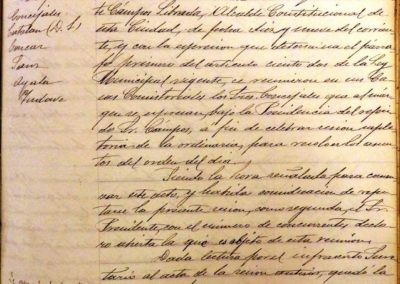 Concejales
Catalan (D. L.)
Cuscar
Sanz
Ayala
te Campos Librada, Alcalde Constitucional de
esta Ciudad, de fecha diez y nueve del corrien-
te, y con la expresion que determina el parra-
fo primero del articulo ciento dos de la Ley
Municipal vigente, se reunieron en las Ca-
sas Consistoriales los Sres. Concejales que al mar-
gen se expresan, bajo la Presidencia del
Sr. Campos, a fin de celebrar sesion suple-
toria de la ordinaria, para resolver los asun-
tos del orden del dia.
Siendo la hora señalada para comen-
zar este acto, y habida consideracion de repu-
tarse la presente sesion, como segunda, el Sr.
Presidente, con el número de concurrentes, decla-
ro abierta la que es objeto de esta reunion.
Dada lectura por el infrascrito Secre-
tario al acta de la sesion anterior, quedó la